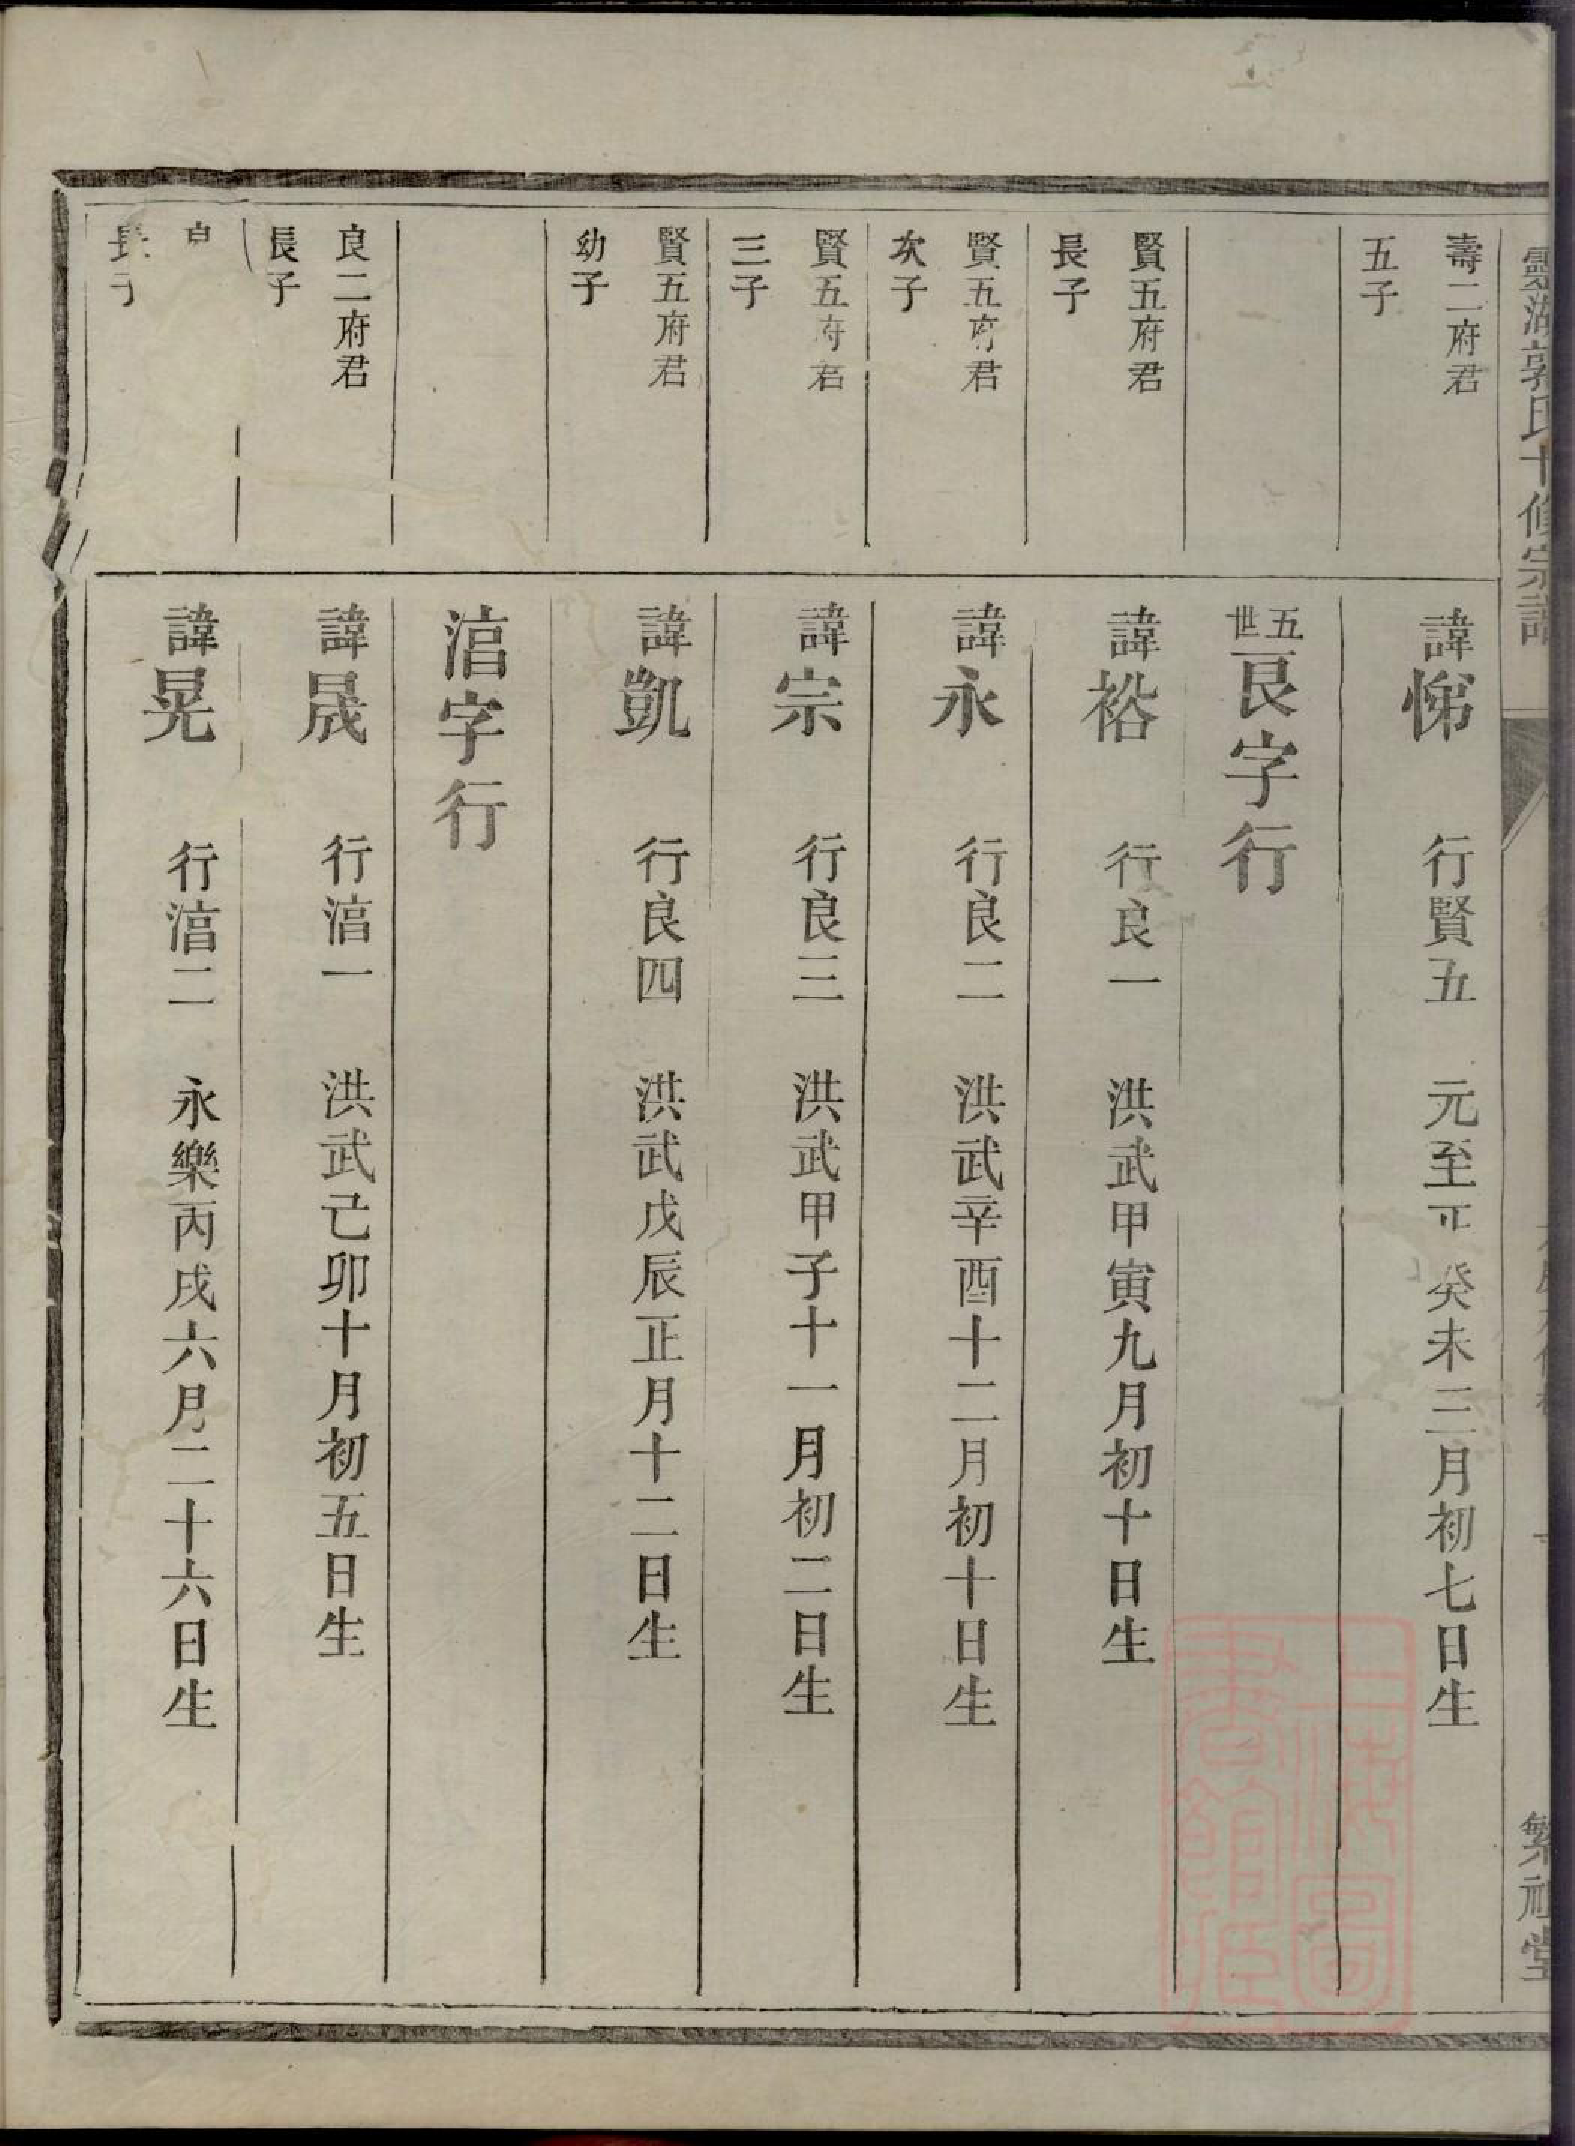 靈湖郭氏十修宗譜
繁祉堂
壽二府君
五子
諱悌 行賢五 元至正癸未三月初七日生
五世
良字行
賢五府君
長子
諱裕 行良一 洪武甲寅九月初十日生
賢五府君
次子
諱永 行良二 洪武辛酉十二月初十日生
賢五府君
三子
諱宗 行良三 洪武甲子十一月初二日生
賢五府君
幼子
諱凱 行良四 洪武戊辰正月十二日生
湻字行
良二府君
長子
諱晟 行湻一 洪武己卯十月初五日生
長子
諱晃 行湻二 永樂丙戌六月二十六日生
上海圖書館藏